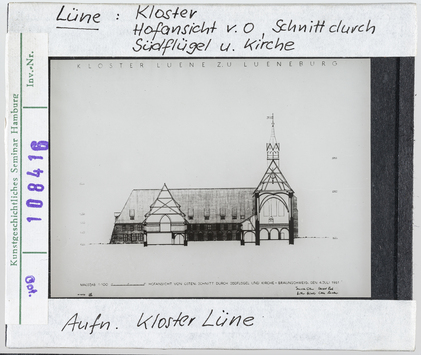 Lüne : Kloster
Hofansicht v. O, Schnitt durch
Südflügel u. Kirche
Kunstgeschichtliches Seminar Hamburg
Inv.-Nr.
108416
KLOSTER LUENE ZU LUENEBURG
HOFANSICHT VON OSTEN. SCHNITT DURCH SÜDFLÜGEL UND KIRCHE - BRAUNSCHWEIG, DEN 4. JULI
Aufn. Kloster Lüne